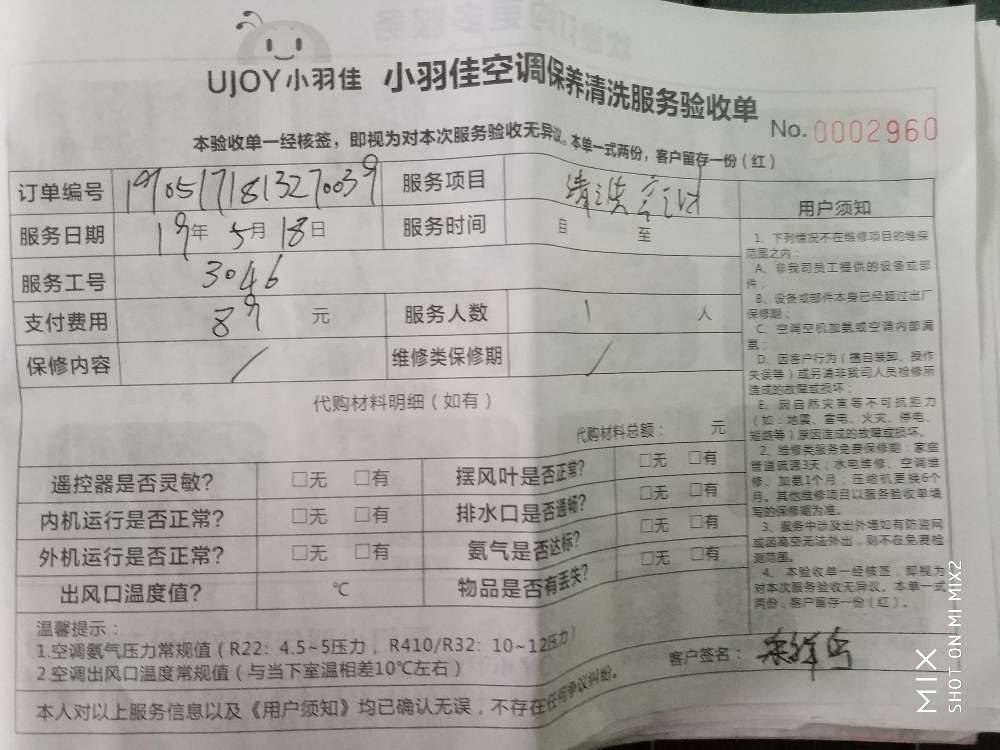 UJOY小羽佳 小羽佳空调保养清洗服务验收单
No. 0002960
本验收单一经核签，即视为对本次服务验收无异议。本单一式两份，客户留存一份（红）
订单编号 1905171813270039 服务项目 清洗空调
服务日期 19年 5月 18日 服务时间 自 至
服务工号 3046
支付费用 89 元 服务人数 1 人
保修内容 / 维修类保修期 /
代购材料明细（如有）
代购材料总额： 元
遥控器是否灵敏? □无 □有 摆风叶是否正常? □无 □有
内机运行是否正常? □无 □有 排水口是否通畅? □无 □有
外机运行是否正常? □无 □有 氨气是否达标? □无 □有
出风口温度值? ℃ 物品是否有丢失? □无 □有
温馨提示：
1.空调氨气压力常规值（R22：4.5~5压力，R410/R32：10~12压力）
2.空调出风口温度常规值（与当下室温相差10℃左右）
客户签名：
本人对以上服务信息以及《用户须知》均已确认无误，不存在任何争议纠纷。
用户须知
1、下列情况不在维修项目的维保
范围之内：
A、非我司员工提供的设备或部
件；
B、设备或部件本身已经超过出厂
保修期；
C、空调空机加氨或空调内部漏
氨；
D、因客户行为（擅自装卸、操作
失误等）或另请非我司人员检修所
造成的故障或损坏；
E、因自然灾害等不可抗拒力
（如：地震、雷电、火灾、停电、
短路等）原因造成的故障或损坏。
2、维修类服务免费保修期：家庭
管道疏通3天；水电维修、空调维
修、加氨1个月；压缩机更换6个
月。其他维修项目以服务验收单填
写的保修期为准。
3、服务中涉及出外墙如有防盗网
或因高空无法外出，则不在免费检
测范围。
4、本验收单一经核签，即视为
对本次服务验收无异议。本单一式
两份，客户留存一份（红）。
MIX
SHOT ON MI MIX2